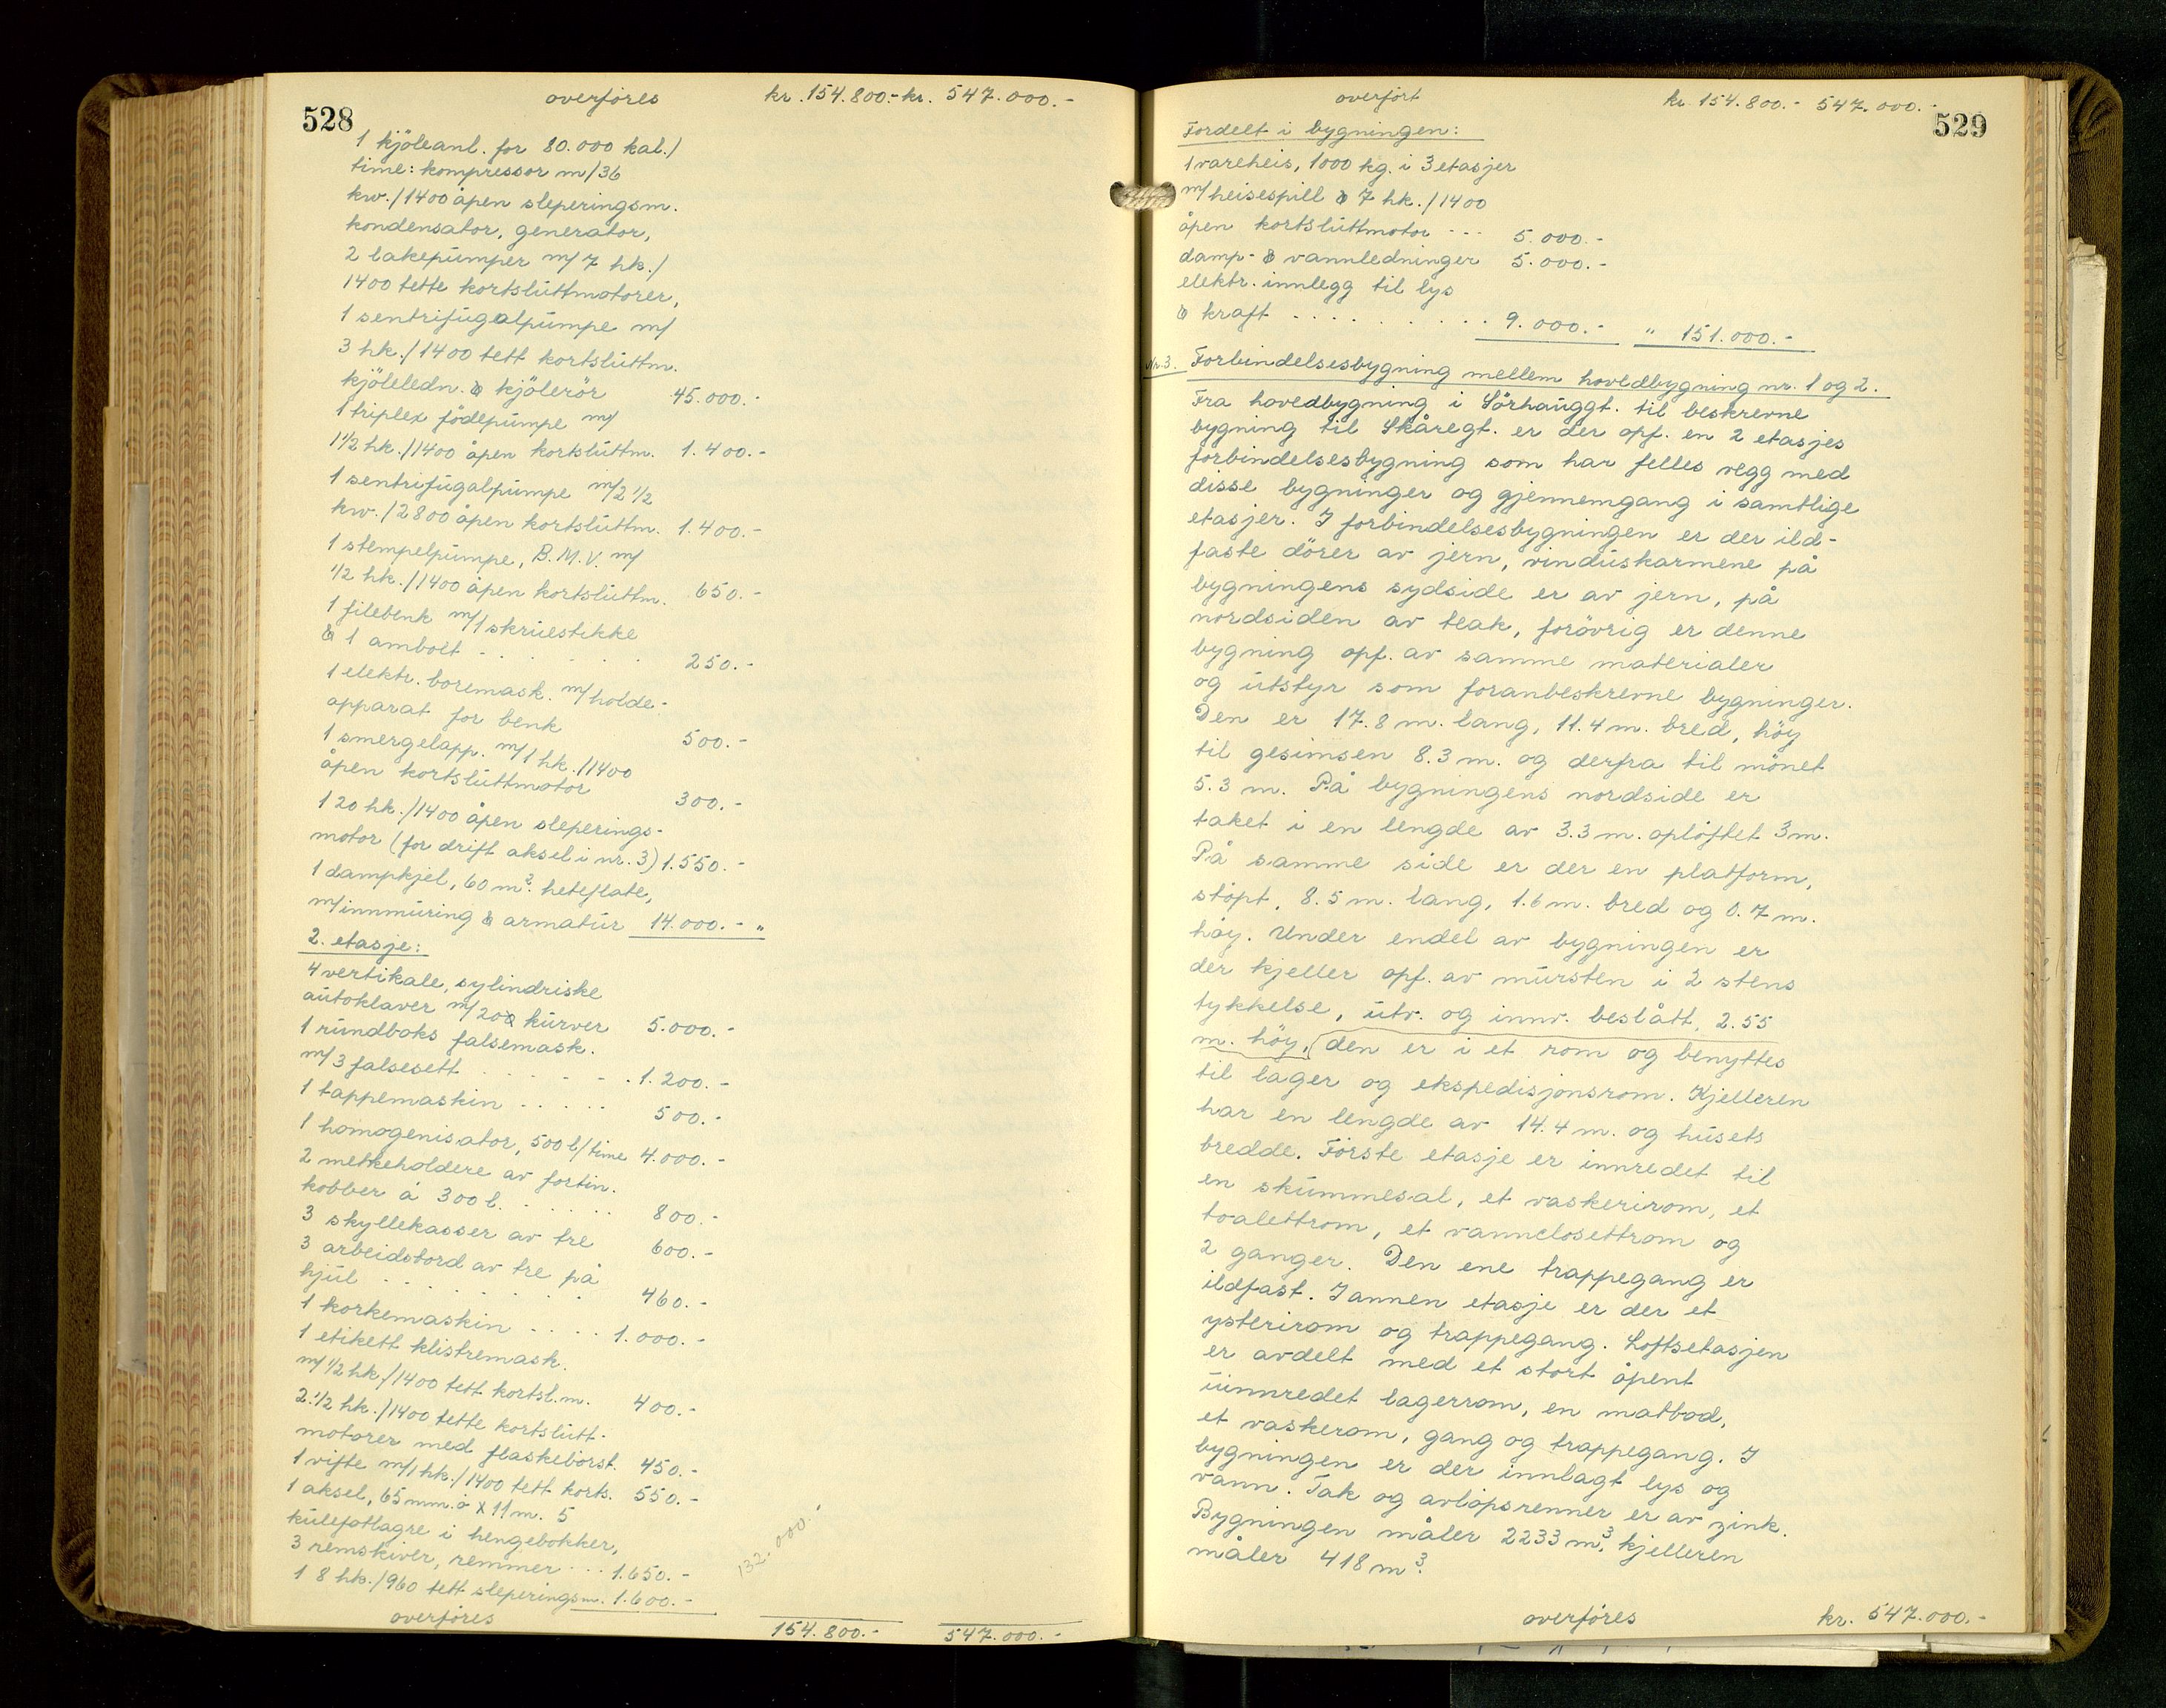 528
overføres kr. 154.800.- kr. 547.000.-
1 kjöleanl. for 80.000 kal./
time: kompressor m/36
kw./1400 åpen sleperingsm.
kondensator, generator,
2 lakepumper m/7 hk./
1400 tette kortsluttmotorer,
1 sentrifugalpumpe m/
3 hk./1400 tett kortsluttm.
kjöleledn. & kjölerör 45.000.-
1 triplex födepumpe m/
1½ hk./1400 åpen kortsluttm. 1.400.-
1 sentrifugalpumpe m/2½
kw./2800 åpen kortsluttm. 1.400.-
1 stempelpumpe, B.M.V. m/
½ hk./1400 åpen kortsluttm. 650.-
1 filebenk m/1 skruestikke
& 1 ambolt . . . . . 250.-
1 elektr. boremask. m/holde-
apparat for benk 500.-
1 smergelapp. m/1 hk./1400
åpen kortsluttmotor 300.-
1 20 hk./1400 åpen sleperings-
motor (for drift aksel i nr. 3) 1.550.-
1 dampkjel, 60 m². heteflate,
m/innmuring & armatur 14.000.- "
2. etasje:
4 vertikale, sylindriske
autoklaver m/200 kurver 5.000.-
1 rundboks falsemask.
m/3 falsesett . . . . . . 1.200.-
1 tappemaskin . . . . . 500.-
1 homogenisator, 500 l/time 4.000.-
2 melkeholdere av fortin.
kobber à 300 l. . . . . . 800.-
3 skyllekasser av tre 600.-
3 arbeidsbord av tre på
hjul . . . . . . . 460.-
1 korkemaskin . . . . 1.000.-
1 etikett klistremask.
m/½ hk./1400 tett kortsl.m. 400.-
2 ½ hk./1400 tette kortslutt-
motorer med flaskebörst. 450.-
1 vifte m/1 hk./1400 tett korts. 550.-
1 aksel, 65 mm. ö x 11 m. 5
kulefotlagre i hengebokker,
3 remskiver, remmer . . . 1.650.-
1 8 hk./960 tett sleperingsm. 1.600.-
132.000.-
overføres 154.800.- 547.000.-
529
overført kr. 154.800.- 547.000.-
Fordelt i bygningen:
1 vareheis, 1000 kg. i 3 etasjer
m/heisespill & 7 hk./1400
åpen kortsluttmotor . . . 5.000.-
damp- & vannledninger 5.000.-
elektr. innlegg til lys
& kraft . . . . . . . . 9.000.- " 151.000.-
Nr. 3. Forbindelsesbygning mellem hovedbygning nr. 1 og 2.
Fra hovedbygning i Sörhauggt. til beskrevne
bygning til Skåregt. er der opf. en 2 etasjes
forbindelsesbygning som har felles vegg med
disse bygninger og gjennemgang i samtlige
etasjer. I forbindelsesbygningen er der ild-
faste dörer av jern, vinduskarmene på
bygningens sydside er av jern, på
nordsiden av teak, forövrig er denne
bygning opf. av samme materialer
og utstyr som foranbeskrevne bygninger.
Den er 17.8 m. lang, 11.4 m. bred, höy
til gesimsen 8.3 m. og derfra til mönet
5.3 m. På bygningens nordside er
taket i en lengde av 3.3 m. oplöftet 3 m.
På samme side er der en platform,
stöpt, 8.5 m. lang, 1.6 m. bred og 0.7 m.
höy. Under endel av bygningen er
der kjeller opf. av mursten i 2 stens
tykkelse, utv. og innv. beslått, 2.55
m. höy, den er i et rom og benyttes
til lager og ekspedisjonsrom. Kjelleren
har en lengde av 14.4 m. og husets
bredde. Förste etasje er innredet til
en skummesal, et vaskerirom, et
toalettrom, et vannclosettrom og
2 ganger. Den ene trappegang er
ildfast. I annen etasje er der et
ysterirom og trappegang. Loftsetasjen
er avdelt med et stort åpent
uinnredet lagerrom, en matbod,
et vaskerom, gang og trappegang. I
bygningen er der innlagt lys og
vann. Tak og avlöpsrenner er av zink.
Bygningen måler 2233 m³, kjelleren
måler 418 m³.
overføres kr. 547.000.-